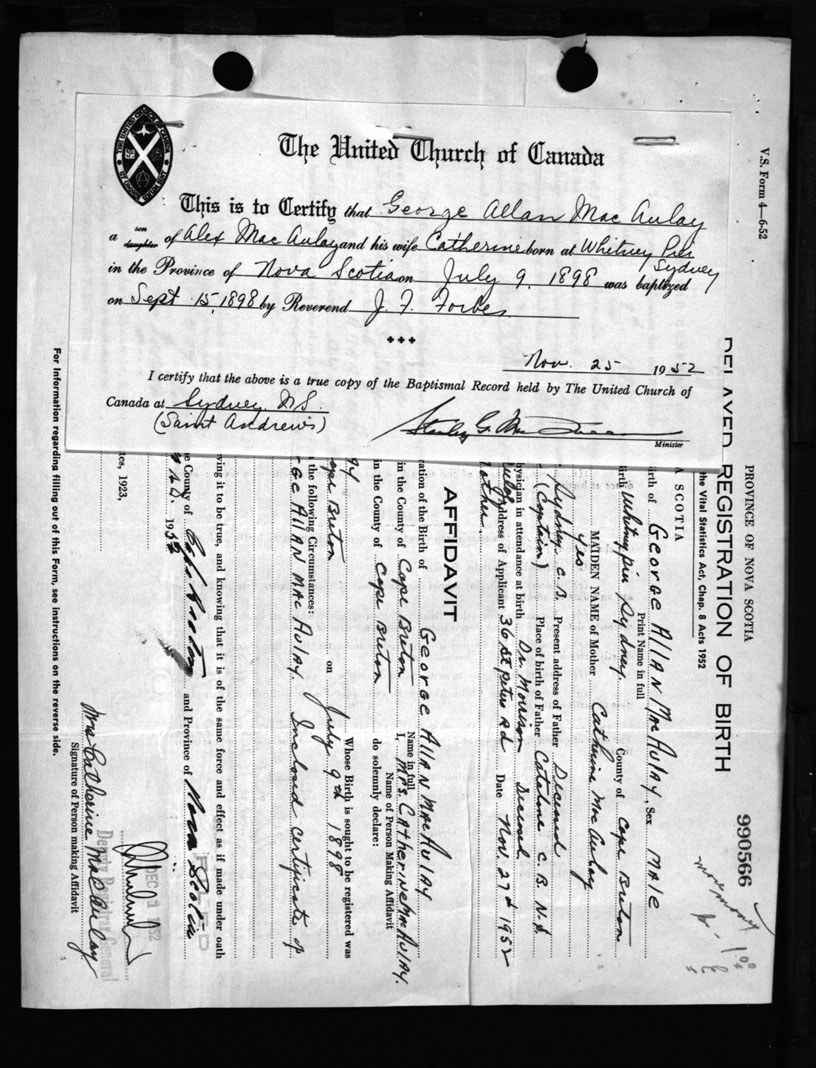 The United Church of Canada
This is to Certify that George Allan Mac Aulay
a son daughter of Alex Mac Aulay and his wife Catherine born at Whitney Pier
Sydney
in the Province of Nova Scotia on July 9, 1898 was baptized
on Sept 15, 1898 by Reverend J. F. Forbes
Nov. 25 1952
I certify that the above is a true copy of the Baptismal Record held by The United Church of
Canada at Sydney N.S.
(Saint Andrews)
Minister
V.S. Form 4—6-52
PROVINCE OF NOVA SCOTIA
990566
DELAYED REGISTRATION OF BIRTH
the Vital Statistics Act, Chap. 8 Acts 1952
A SCOTIA
birth of George Allan MacAulay Sex Male
Print Name in full
birth Whitney Pier Sydney County of Cape Breton
MAIDEN NAME of Mother Catherine MacAulay
yes
Sydney, C.B. Present address of Father Deceased
(Captain) Place of birth of Father Catalone C.B. N.S.
ysician in attendance at birth Dr. Morrison Deceased
Address of Applicant 36 St Peters Rd Date Nov. 27th 1952
other
AFFIDAVIT
ration of the Birth of George Allan MacAulay
Name in full
in the County of Cape Breton I, Mrs. Catherine MacAulay.
Name of Person Making Affidavit
in the County of Cape Breton do solemnly declare:
Whose Birth is sought to be registered was
Cape Breton on July 9th 1898
the following Circumstances:
George Allan MacAulay. Inclosed certificate of
ving it to be true, and knowing that it is of the same force and effect as if made under oath
he County of Cape Breton and Province of Nova Scotia
A.D. 1952
FILED
DEC 1 1952
Deputy Registrar General
tes, 1923,
Mrs Catherine MacAulay
Signature of Person making Affidavit
For Information regarding filling out of this Form, see instructions on the reverse side.